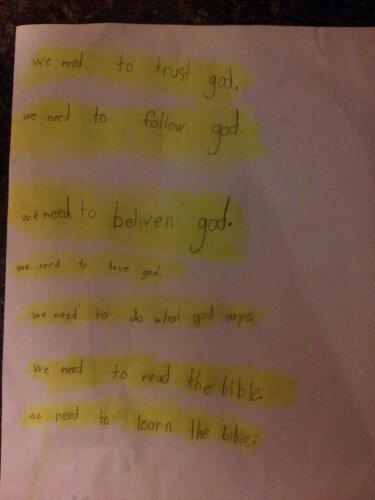 we need to trust god.
we need to follow god.
we need to beliven god.
we need to love god.
we need to do what god says
we need to read the bible.
we need to learn the bible.